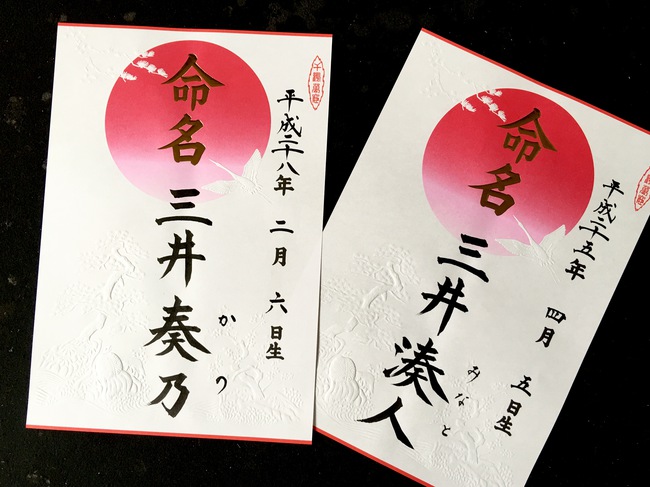 平成二十八年 二月 六日生
命名 三井奏乃
かの
平成二十五年 四月 五日生
命名 三井湊人
みなと